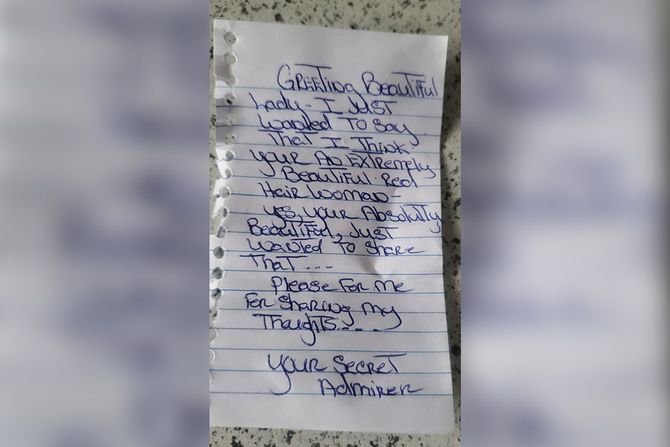 Greeting Beautiful
Lady - I JUST
wanted To Say
That I Think
your An Extremely
Beautiful Red
Hair Woman -
yes, your Absolutly
Beautiful, JUST
wanted To Share
That ...
Please For Me
For Sharing my
Thoughts ....
your Secret
Admirer